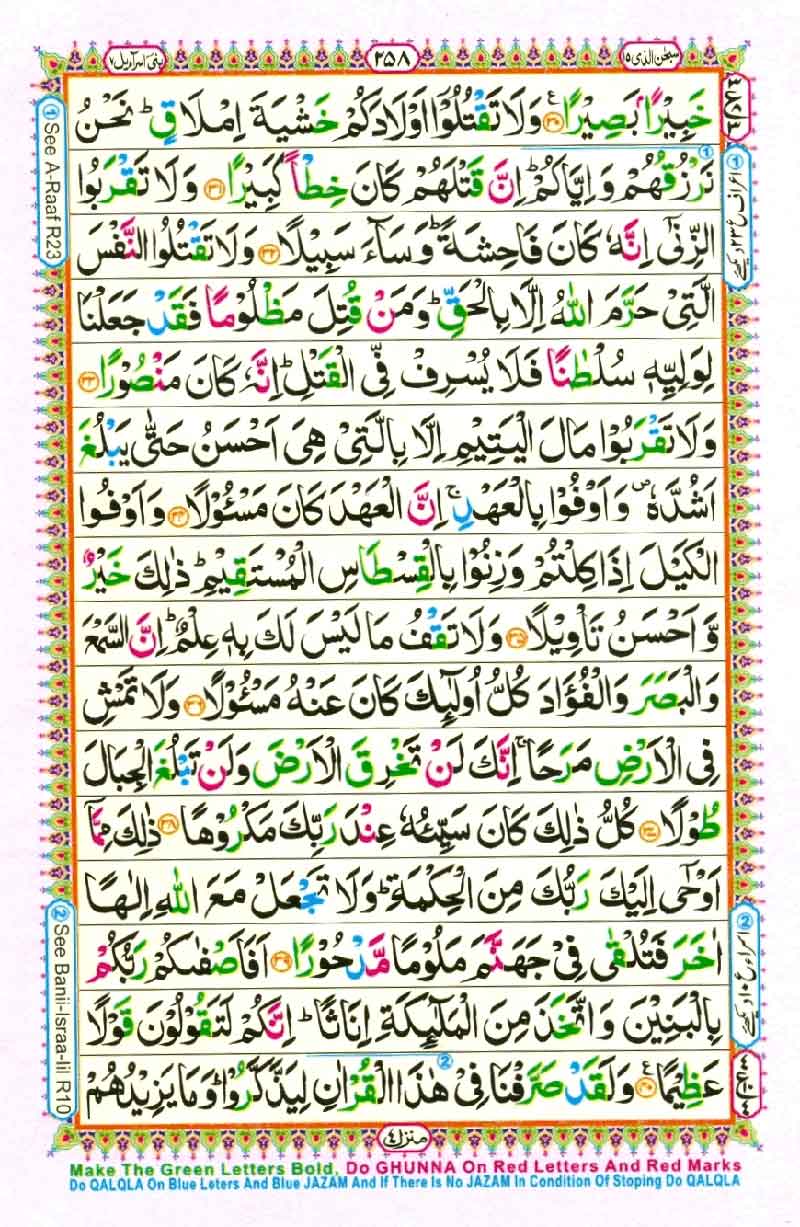 بنی اسرآءیل ۱۷
۲۵۸
سبحٰن الذی ۱۵
خَبِيْرًۢا بَصِيْرًا ۟۳۰ وَلَا تَقْتُلُوْۤا اَوْلَادَكُمْ خَشْيَةَ اِمْلَاقٍ ؕ نَحْنُ
نَرْزُقُهُمْ وَاِيَّاكُمْ ؕ اِنَّ قَتْلَهُمْ كَانَ خِطْاً كَبِيْرًا ۳۱ وَلَا تَقْرَبُوا
الزِّنٰۤى اِنَّهٗ كَانَ فَاحِشَةً ؕ وَسَآءَ سَبِيْلًا ۳۲ وَلَا تَقْتُلُوا النَّفْسَ
الَّتِيْ حَرَّمَ اللّٰهُ اِلَّا بِالْحَقِّ ؕ وَمَنْ قُتِلَ مَظْلُوْمًا فَقَدْ جَعَلْنَا
لِوَلِيِّهٖ سُلْطٰنًا فَلَا يُسْرِفْ فِّي الْقَتْلِ ؕ اِنَّهٗ كَانَ مَنْصُوْرًا ۳۳
وَلَا تَقْرَبُوْا مَالَ الْيَتِيْمِ اِلَّا بِالَّتِيْ هِيَ اَحْسَنُ حَتّٰى يَبْلُغَ
اَشُدَّهٗ ۪ وَاَوْفُوْا بِالْعَهْدِ ۚ اِنَّ الْعَهْدَ كَانَ مَسْـُٔوْلًا ۳۴ وَاَوْفُوا
الْكَيْلَ اِذَا كِلْتُمْ وَزِنُوْا بِالْقِسْطَاسِ الْمُسْتَقِيْمِ ؕ ذٰلِكَ خَيْرٌ
وَّاَحْسَنُ تَاْوِيْلًا ۳۵ وَلَا تَقْفُ مَا لَيْسَ لَكَ بِهٖ عِلْمٌ ؕ اِنَّ السَّمْعَ
وَالْبَصَرَ وَالْفُؤَادَ كُلُّ اُولٰٓئِكَ كَانَ عَنْهُ مَسْـُٔوْلًا ۳۶ وَلَا تَمْشِ
فِي الْاَرْضِ مَرَحًا ۚ اِنَّكَ لَنْ تَخْرِقَ الْاَرْضَ وَلَنْ تَبْلُغَ الْجِبَالَ
طُوْلًا ۳۷ كُلُّ ذٰلِكَ كَانَ سَيِّئُهٗ عِنْدَ رَبِّكَ مَكْرُوْهًا ۳۸ ذٰلِكَ مِمَّاۤ
اَوْحٰۤى اِلَيْكَ رَبُّكَ مِنَ الْحِكْمَةِ ؕ وَلَا تَجْعَلْ مَعَ اللّٰهِ اِلٰهًا
اٰخَرَ فَتُلْقٰى فِيْ جَهَنَّمَ مَلُوْمًا مَّدْحُوْرًا ۳۹ اَفَاَصْفٰىكُمْ رَبُّكُمْ
بِالْبَنِيْنَ وَاتَّخَذَ مِنَ الْمَلٰٓئِكَةِ اِنَاثًا ؕ اِنَّكُمْ لَتَقُوْلُوْنَ قَوْلًا
عَظِيْمًا ۴۰ وَلَقَدْ صَرَّفْنَا فِيْ هٰذَا الْقُرْاٰنِ لِيَذَّكَّرُوْا ؕ وَمَا يَزِيْدُهُمْ
① See A-Raaf R23
② See Banii-Israa-Iil R10
منزل ۴
Make The Green Letters Bold, Do GHUNNA On Red Letters And Red Marks
Do QALQLA On Blue Leters And Blue JAZAM And If There Is No JAZAM In Condition Of Stoping Do QALQLA